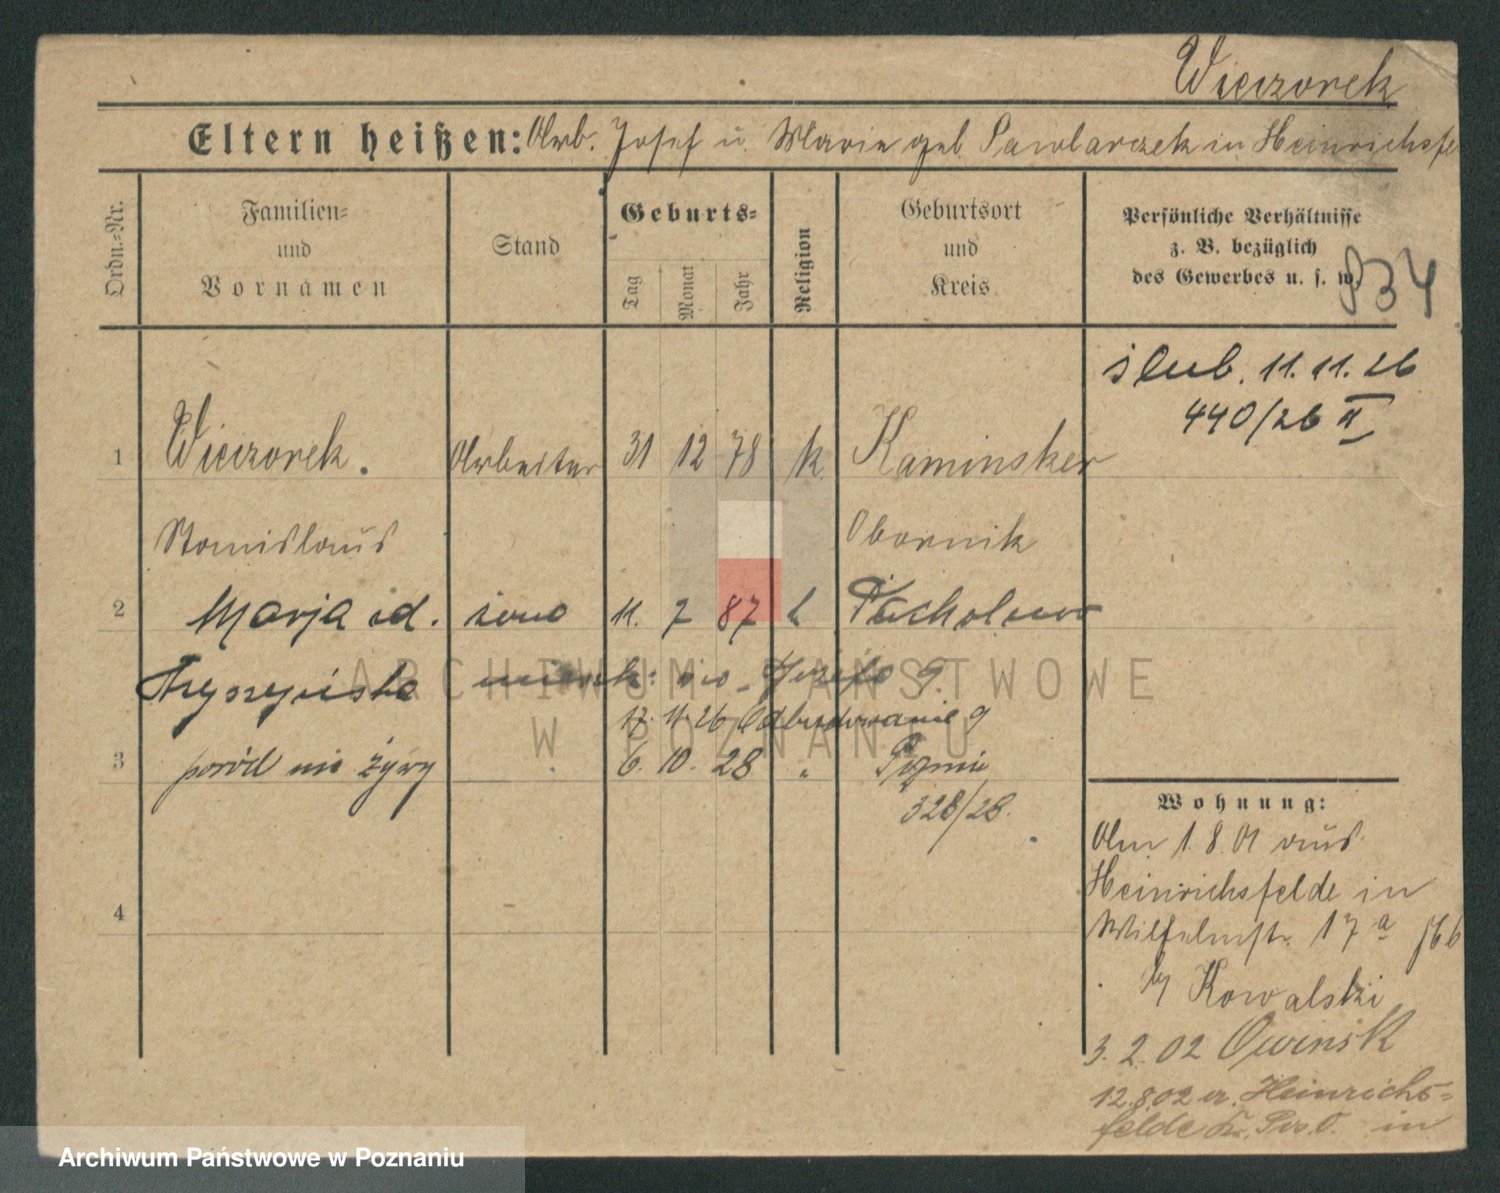 Wieczorek
Eltern heißen: Arb. Josef u. Marie geb. Pawlarczek in Heinrichsfe
Ordn.-Nr.
Familien-
und
Vornamen
Stand
Geburts-
Tag
Monat
Jahr
Religion
Geburtsort
und
Kreis
Persönliche Verhältnisse
z. B. bezüglich
des Gewerbes u. s. w.
834
ślub. 11.11.26
440/26 II
1 Wieczorek. Arbeiter 31 12 78 k. Kaminsker
Stanislaus Obornik
2 Marja id. żona 11. 7 87 k
ARCHIWUM PAŃSTWOWE
W POZNANIU
17. 11. 26
3 poród nie żywy 6. 10. 28 "
328/28.
4
Wohnung:
Am 1.8.01 aus
Heinrichsfelde in
Wilhelmstr. 17 a
b/ Kowalski
3.2.02 Owinsk
12.8.02 Heinrichs-
felde in
Archiwum Państwowe w Poznaniu